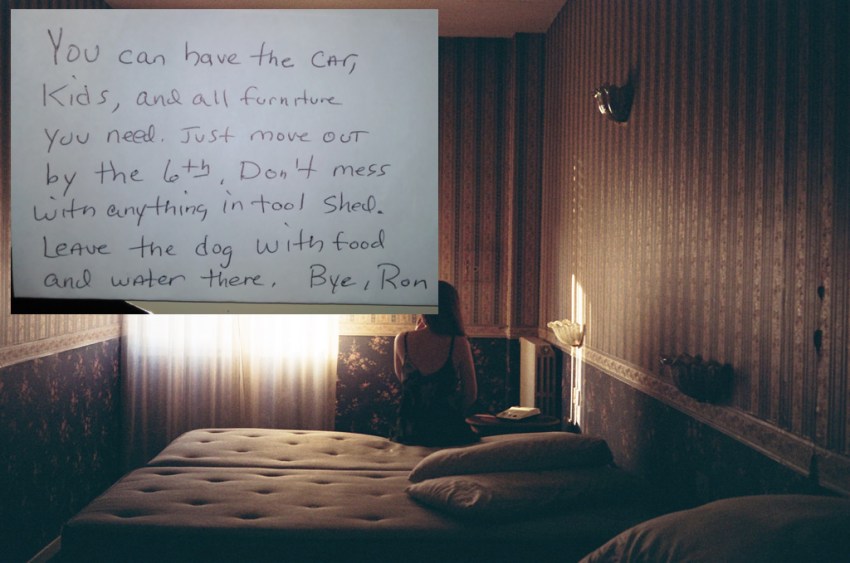 You can have the CAr,
Kids, and all furniture
you need. Just move out
by the 6th, Don't mess
with anything in tool Shed.
LeAve the dog with food
and wAter there. Bye, Ron